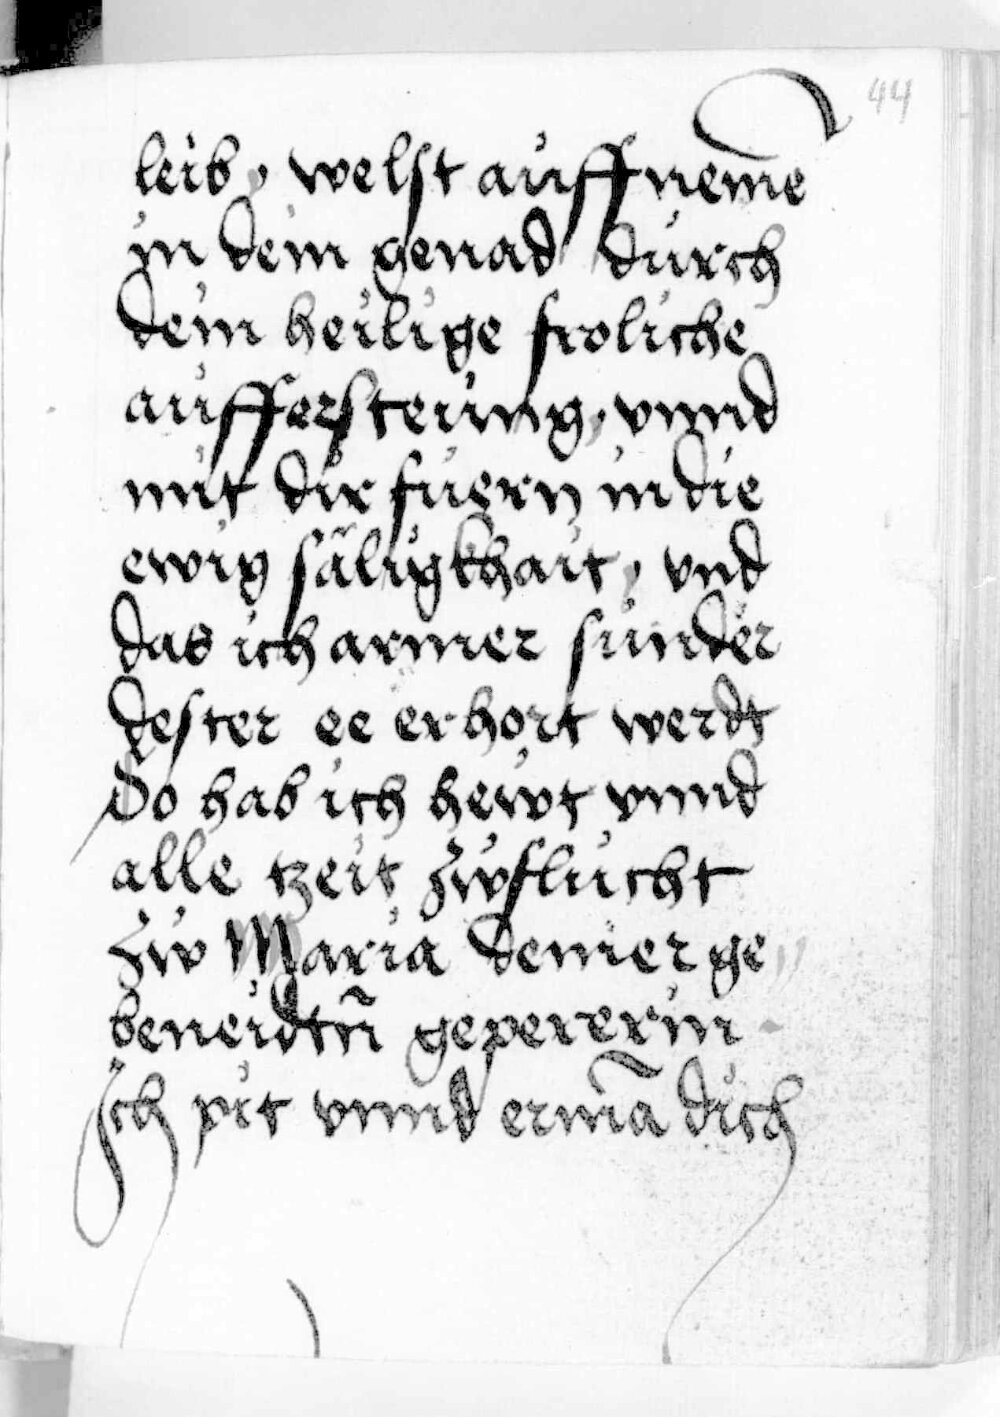 44
leib, welst auffneme͂
in dein genad durch
dein heilige froliche
auffersteung, vnnd
mit dir fuern in die
ewig säligkhait, vnd
das ich armer sunder
dester ee erhort werdt
So hab ich hewt vnnd
alle tzeit zwflucht
zw Maria deiner ge„
beneidtn̄ gepererin ·
Ich pit vnnd erma͂ dich